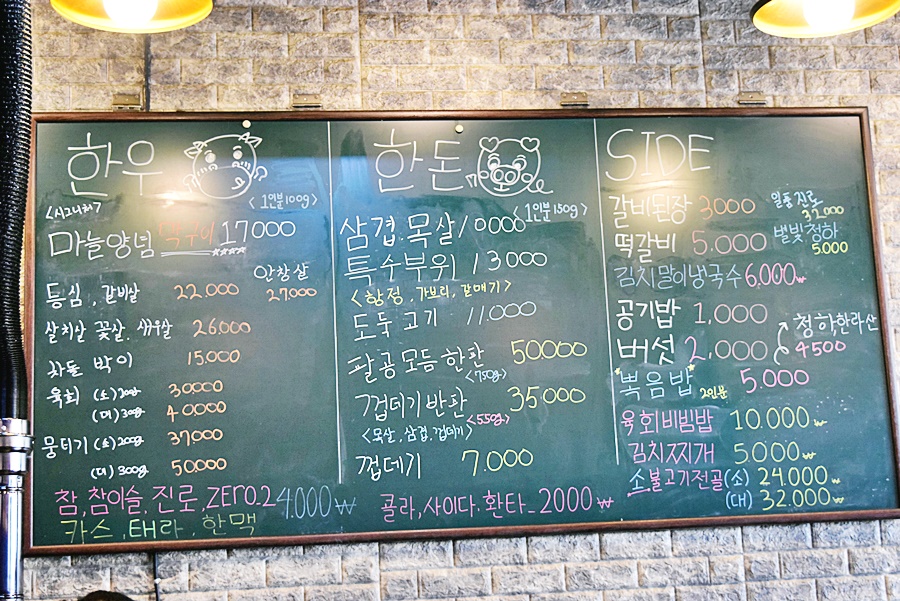 한우
<1인분 100g>
<시그니처>
마늘양념 떡구이 17000
안창살
27.000
등심, 갈비살 22.000
살치살 꽃살. 새우살 26.000
차돌 박이 15,000
육회 (소) 200g 30000
(대) 300g 40000
뭉티기 (소) 200g 37000
(대) 300g 50000
참, 참이슬, 진로, ZERO.2 4.000₩
카스, 테라, 한맥
한돈
<1인분 150g>
삼겹.목살 10000
특수부위 13000
<항정, 가브리, 갈매기>
도둑고기 11.000
팔공모듬한판 50000
<750g>
껍데기반판 35.000
<550g>
<목살, 삼겹, 껍데기>
껍데기 7.000
콜라, 사이다. 환타_2000₩
SIDE
갈비된장 3000
일품진로
32000
떡갈비 5.000
별빛청하
5.000
김치말이냉국수 6,000₩
공기밥 1,000
청하, 한라산
4500
버섯 2,000
*볶음밥* 2인분 5.000
육회비빔밥 10.000₩
김치찌개 5000₩
소불고기전골 (소) 24.000₩
(대) 32.000₩